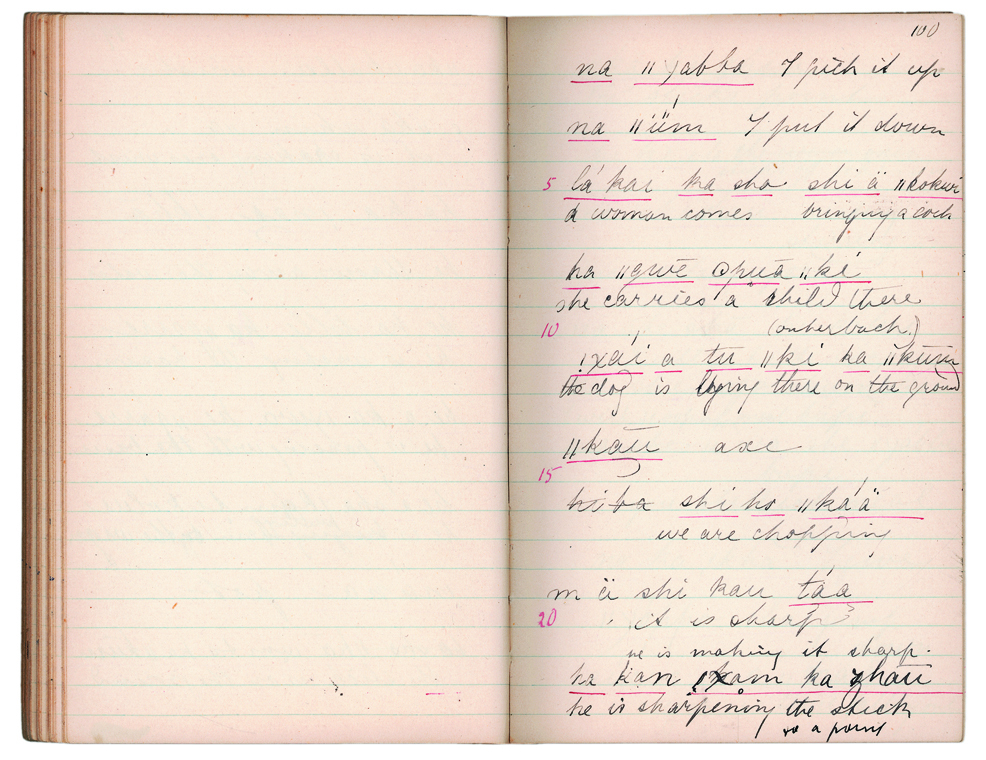 100
na ǁ yabba I pick it up
na ǁüm I put it down
5 lá kai ka sho shi ä ǁkokwi
a woman comes bringing a cock
ha ǁgwē ʘpuā ǁki
she carries a child there
10 (on her back.)
!xai a tu ǁki ka ǁkum
the dog is lying there on the ground
ǁkāu axe
15
hiba shi ho ǁkáä
we are chopping
m ä shi kau táa
20 it is sharp
he is making it sharp.
ha kan ka
he is sharpening the stick
to a point